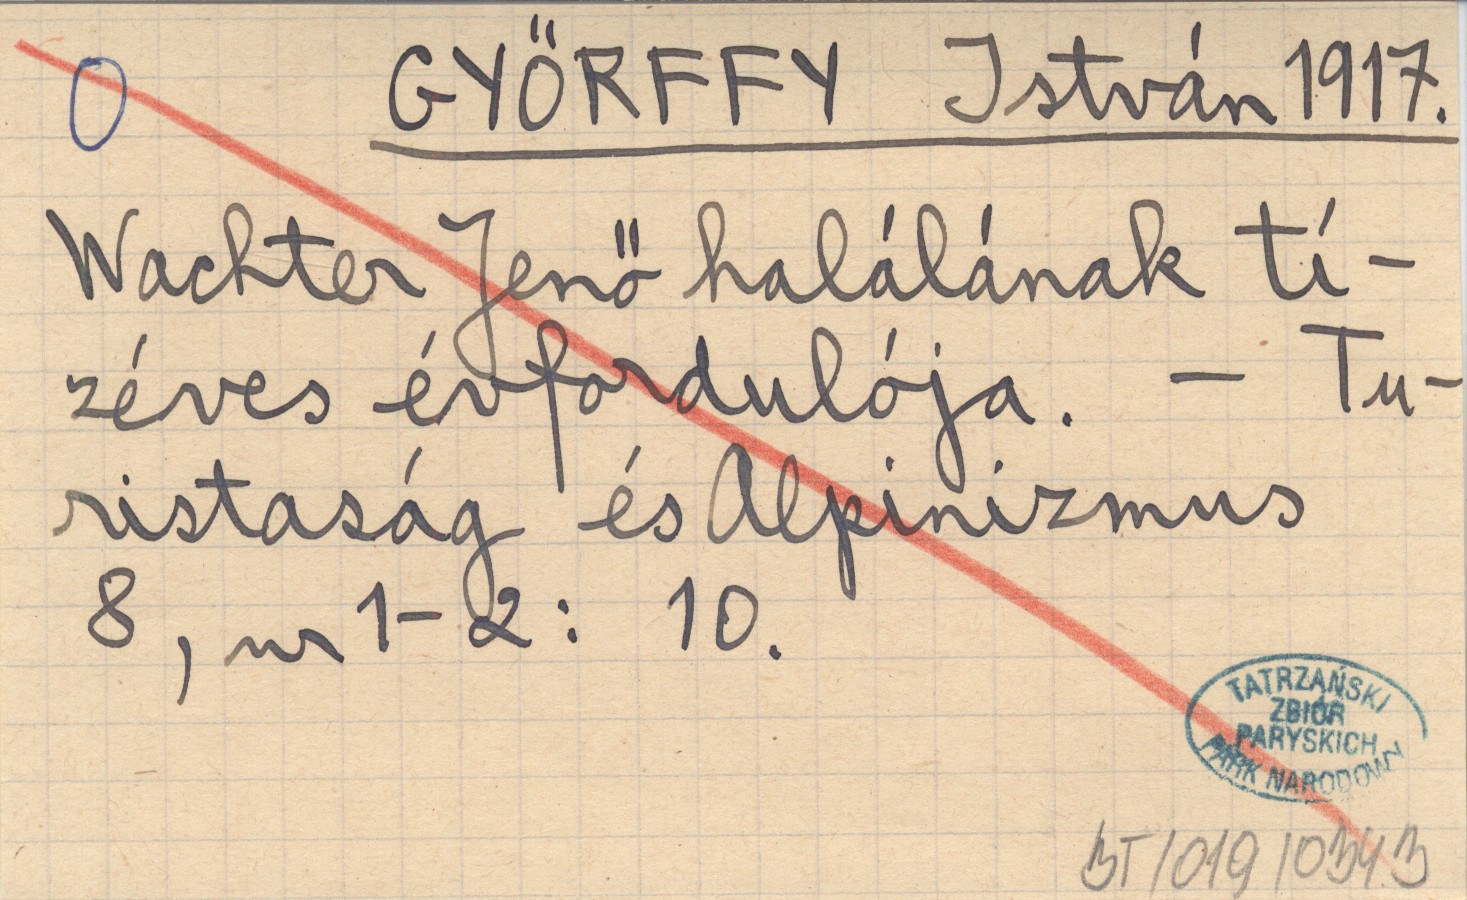 0 GYŐRFFY István 1917.
Wachter Jenő halálának tí-
zéves évfordulója. – Tu-
ristaság és Alpinizmus
8, nr 1-2: 10.
TATRZAŃSKI
ZBIÓR
PARYSKICH
PARK NARODOWY
BT/019/0343